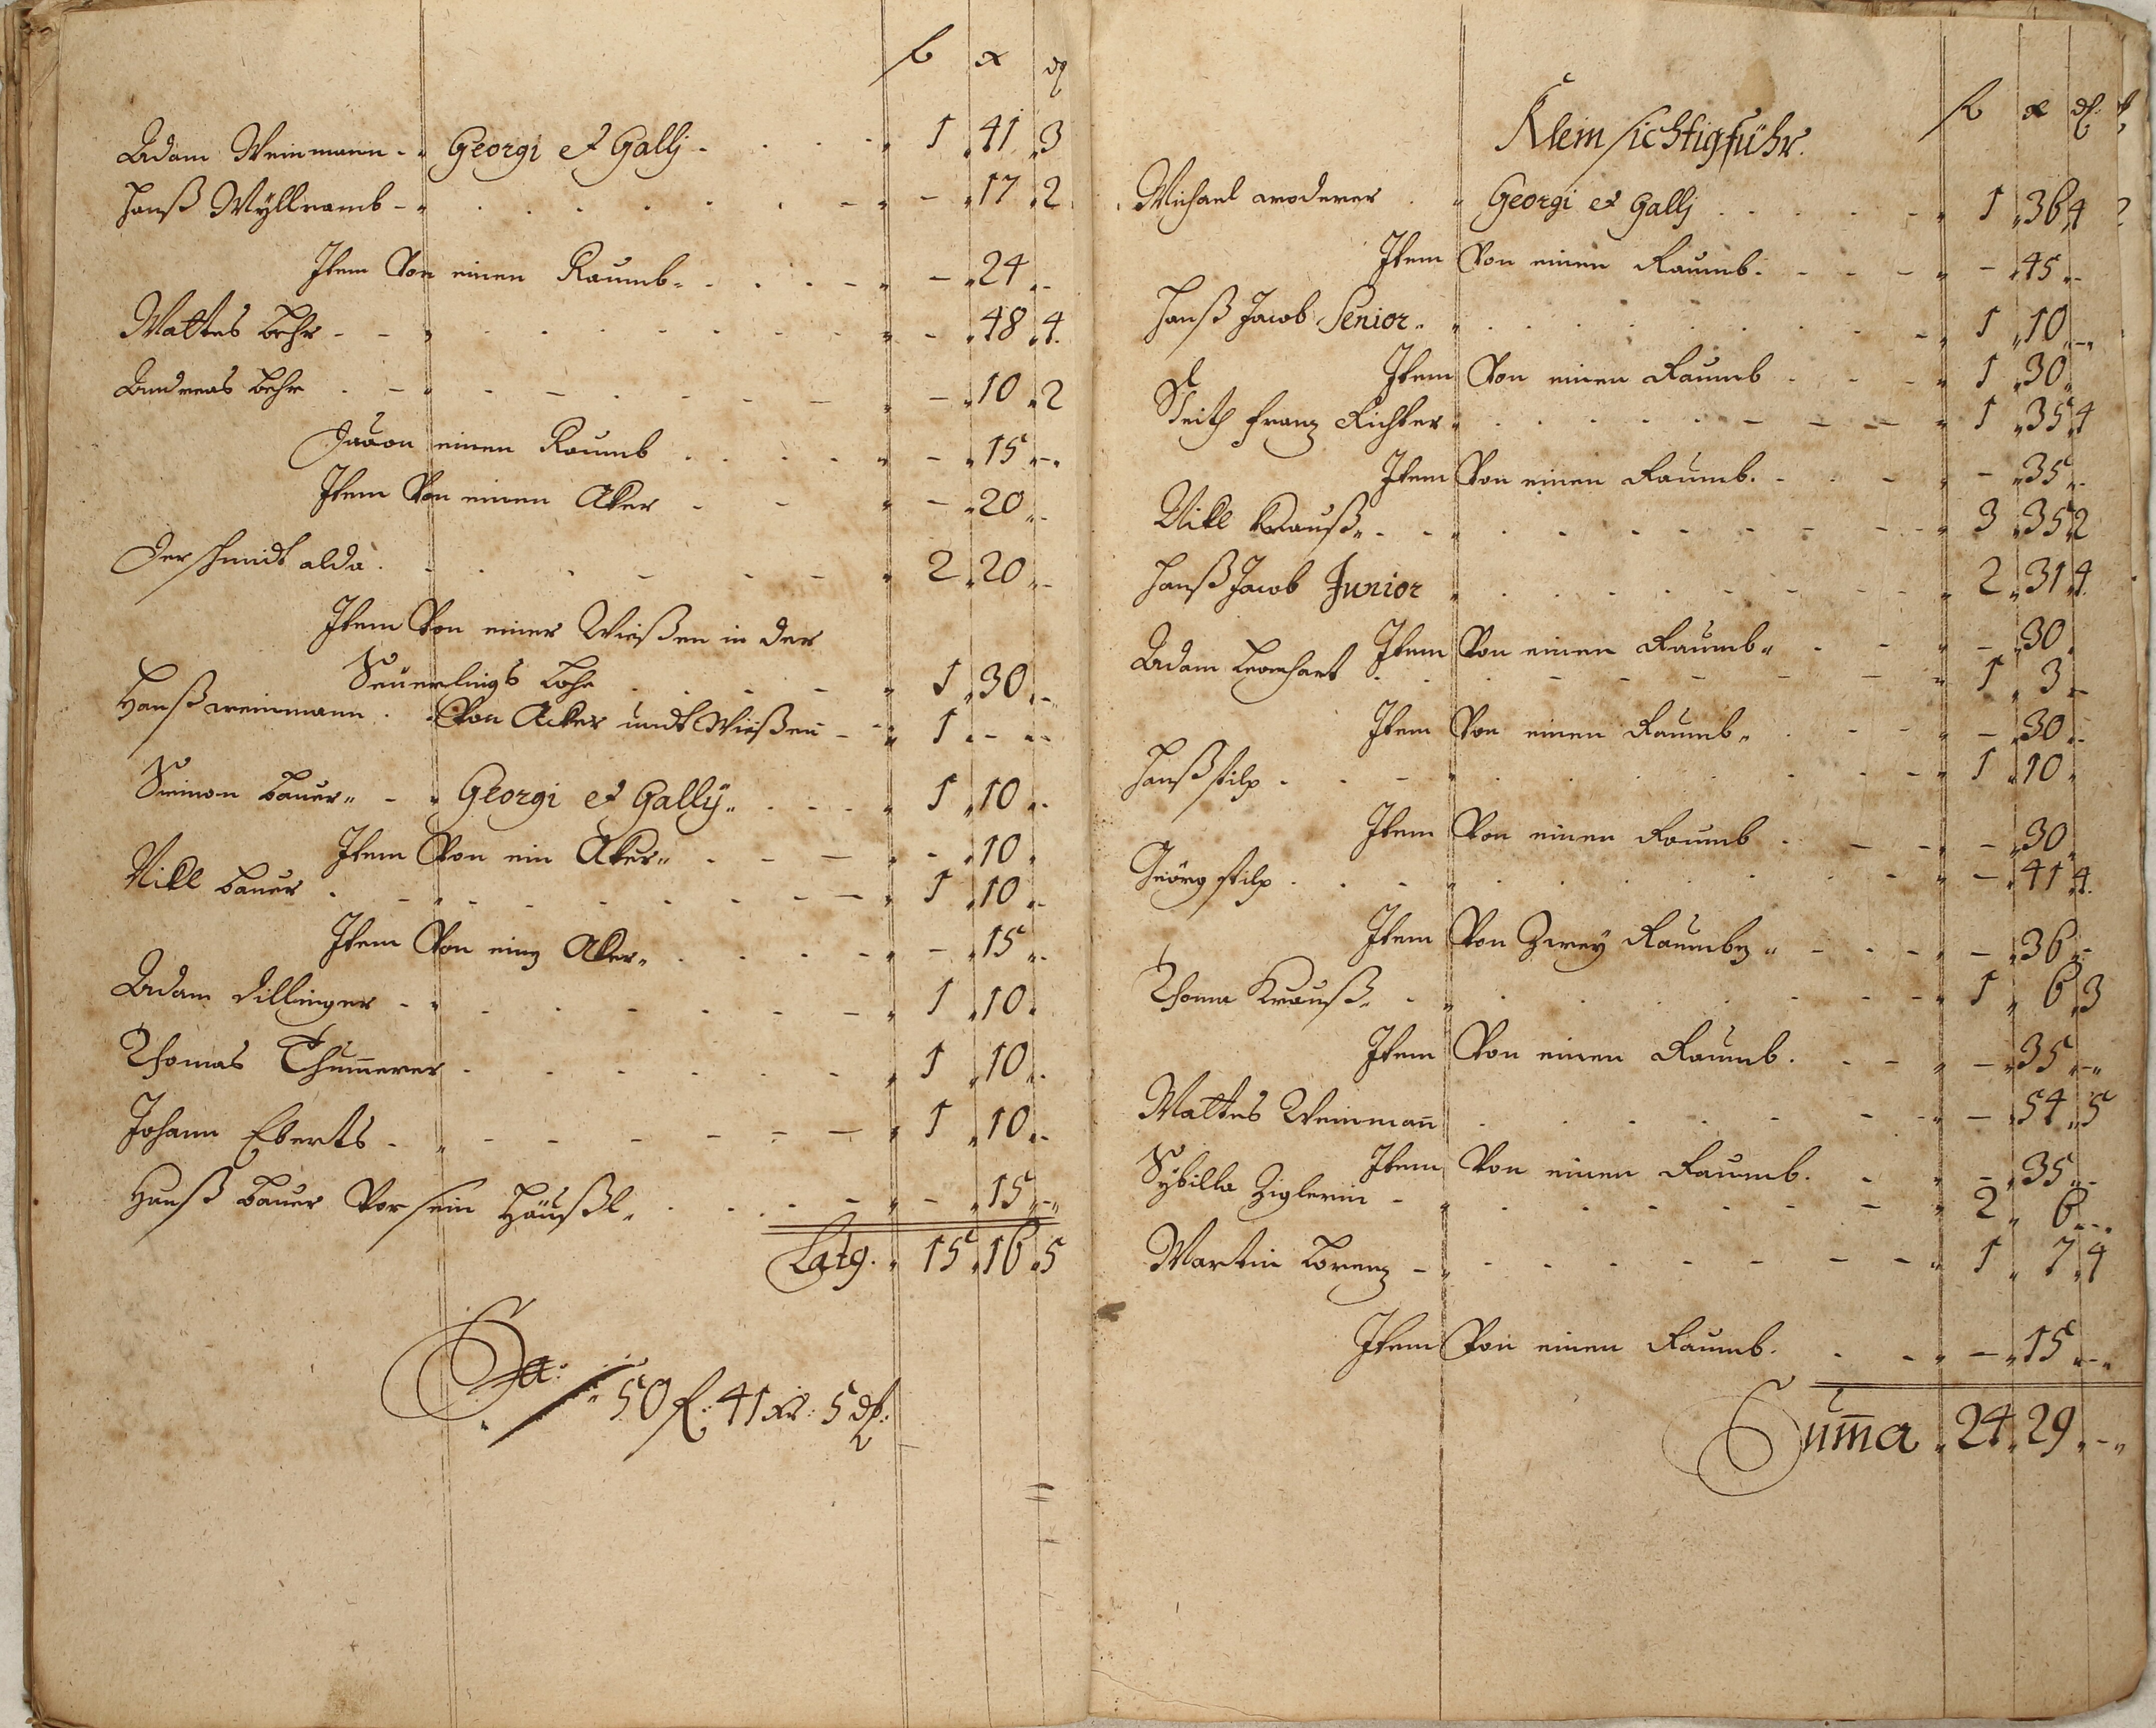 f x dl
Adam Weinmann - " Georgi et Gallj - " 1 " 41 " 3
Hanß Wÿllramb - " - " - " 17 " 2
Item Von einen Raumb " - " 24 " -
Mattes Behr - - " - " 48 " 4
Andreas Behr - - " - " 10 " 2
Dauon einen Raumb - " 15 " -
Item Von einen Aker - " - " 20 " -
Der schmidt alda . 2 " 20 " -
Item Von einer Wießen in der
Seüerlings Lohe - " 1 " 30 " -
Hanß weinmann . Von Acker undt Wießen - " 1 " - " -
Simon Bauer " - " Georgi et Gallÿ " 1 " 10 " -
Item Von ein Aker " - " 10 "
Nikl Bauer . - " 1 " 10 " -
Item Von eing Aker " - " 15 " -
Adam Dillinger - " 1 " 10 "
Thomas Thum̅erer - 1 " 10 " -
Johann Eberts - " 1 " 10 " -
Hanß Bauer Vor sein Häußl " - " 15 " -
Latg. " 15 " 16 " 5
Sa: " 50 f: 41 xr: 5 dl:
f x dl:
Klein sichtigführ.
Michael woderer . " Georgi et Gallj " 1 " 36 " 4
Item Von einen Raumb. - " - " 45 " -
Hanß Jacob Senior " " 1 " 10 " -
Item Von einen Raumb - " 1 " 30 "
Veith Franz Richter " 1 " 35 " 4
Item Von einen Raumb. - " - " 35 " -
Nikl Krauß " - " 3 " 35 " 2
Hanß Jacob Junior " 2 " 31 " 4
Item Von einen Raumb " - " - " 30 "
Adam Leonhart . - " 1 " 3 " -
Item Von einen Raumb " - " - " 30 " -
Hanß stilp . - " 1 " 10 "
Item Von einen Raumb . - " - " 30 "
Geörg stilp . - " - " 41 " 4
Item Von Zweÿ Raumben " - " - " 36 " -
Thoma Krauß " - " 1 " 6 " 3
Item Von einen Raumb . - " - " 35 " -
Mattes Weinman̅ - " - " 54 " 5
Item Von einen Raumb . - " - " 35 " -
Sÿbilla Ziglerin - " 2 " 6 " -
Martin Lorenz - " 1 " 7 " 4
Item Von einen Raumb . - " - " 15 " -
Sum̅a " 24 " 29 " -